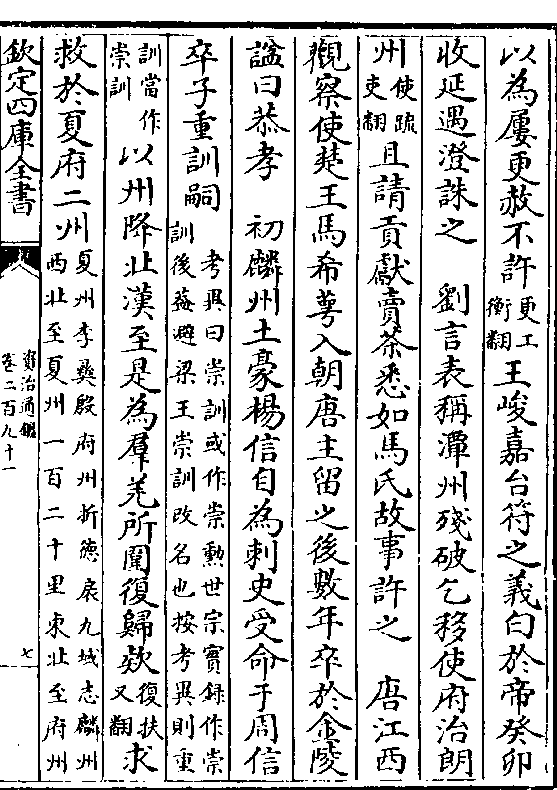 以為屢更赦不許更工衡翻王峻嘉台符之義白於帝癸卯
收延遇澄誅之　劉言表稱潭州殘破乞移使府治朗
州使疏吏翻且請貢獻賣茶悉如馬氏故事許之　唐江西
觀察使楚王馬希萼入朝唐主留之後數年卒於金陵
諡曰恭孝　初麟州土豪楊信自為刺史受命于周信
卒子重訓嗣考異曰崇訓或作崇勲世宗實録作崇訓後葢避梁王崇訓改名也按考異則重
訓當作崇訓以州降北漢至是為羣羌所圍復歸欵復扶又翻求
救於夏府二州夏州李彝殷府州折德扆九域志麟州西北至夏州一百二十里東北至府州
欽定四庫全書
資治通鑑
卷二百九十一
七